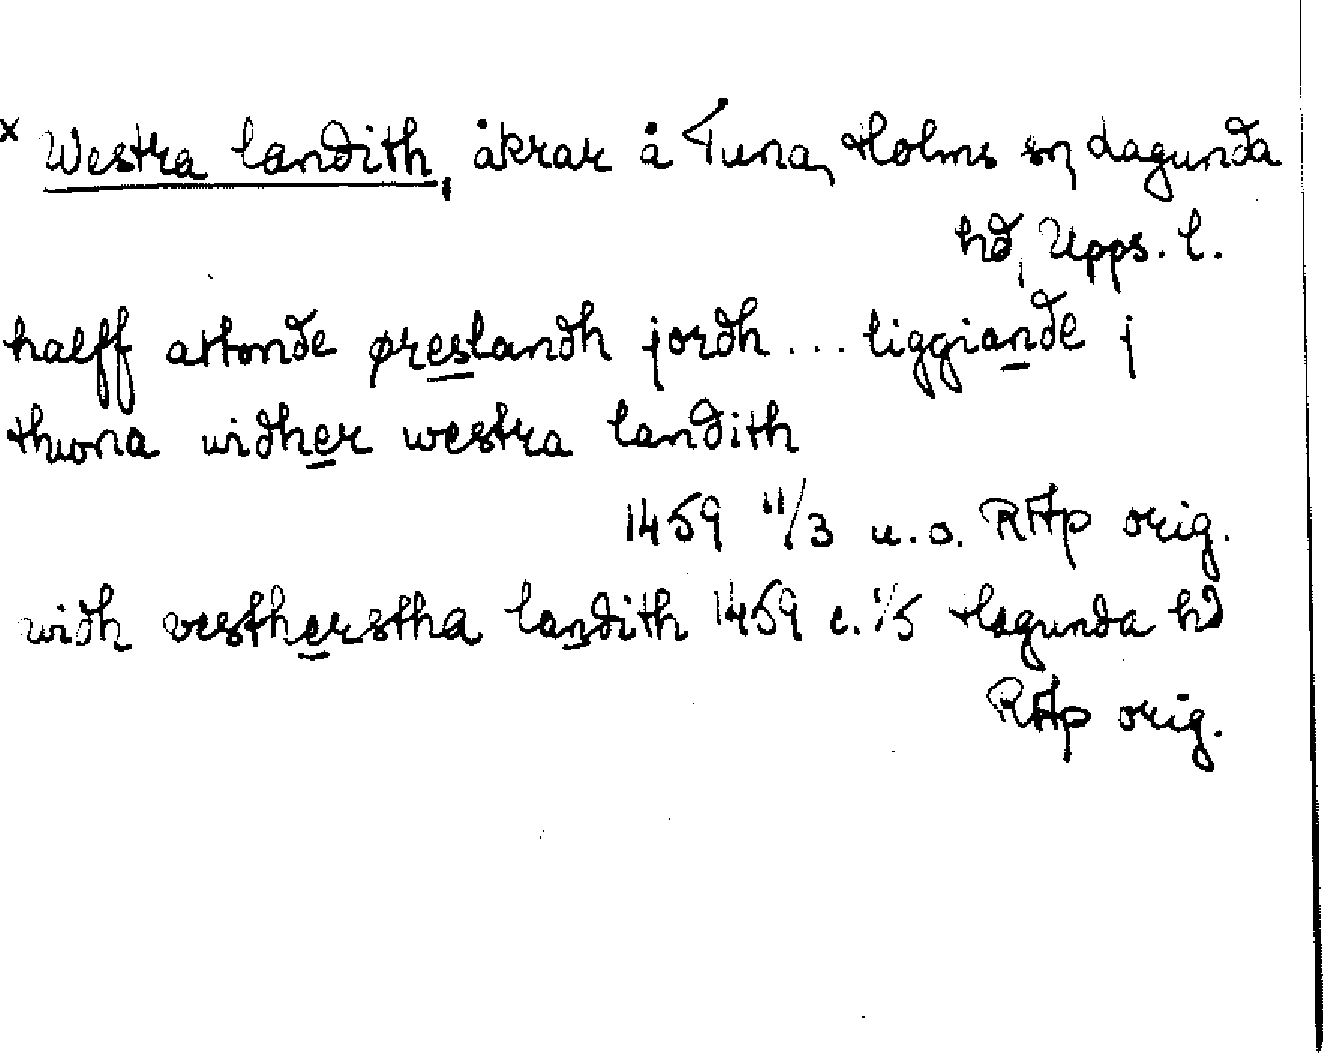 x Westra landith, åkrar å Tuna, Holms sn, Lagunda
hd, Upps. l.
halff attonde øreslandh jordh ... liggiande j
thwna widher westra landith
1459 11/3 u.o. RAp orig.
widh vestherstha landith 1459 e. 1/5 Hagunda hd
RAp orig.